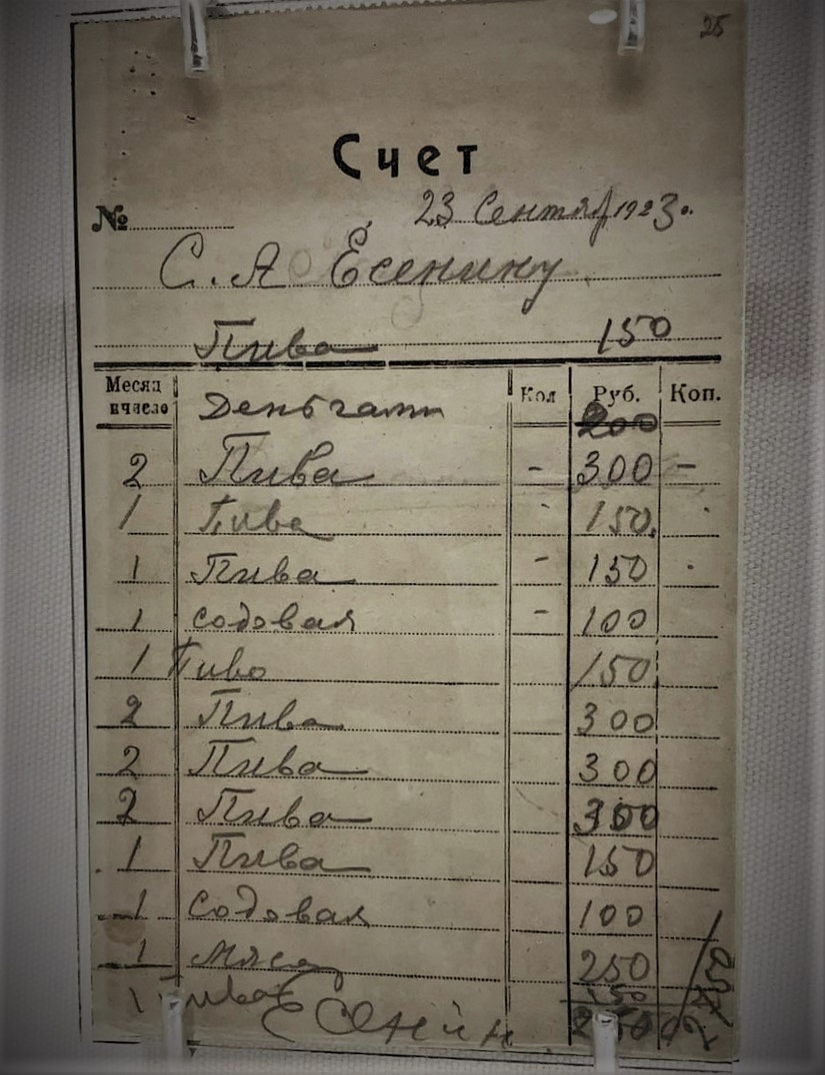 25
Счет
№ 23 Сентяб 1923.
С. А Есенину
Пива 150
Месяц и число Кол Руб. Коп.
Деньгами 200
2 Пива - 300 -
1 Пива - 150.
1 Пива - 150
1 содовая - 100
1 Пиво 150
2 Пива 300
2 Пива 300
2 Пива 300
1 Пива 150
1 Содовая 100
1 Мясо 250
1 Пиво 150
Есенин